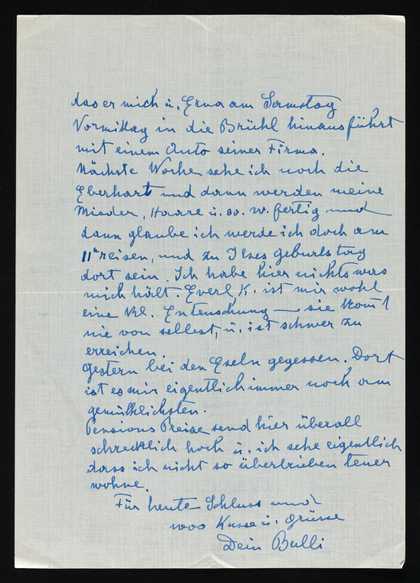 dass er mich u. Erna am Samstag
Vormittag in die Brühl hinausführt
mit einem Auto seiner Firma.
Nächste Woche sehe ich noch die
Eberhart und dann werden meine
Mieder, Haare u. so. w. fertig und
dann glaube ich werde ich doch am
11ten reisen, und zu Ilses Geburtstag
dort sein. Ich habe hier nichts was
mich hält. Everl K. ist mir wohl
eine kl. Enteuschung — sie komt
nie von selbest, u. ist schwer zu
erreichen.
Gestern bei den Eseln gegessen. Dort
ist es mir eigentlich immer noch am
gemütlichsten.
Pensions Preise send hier überall
schrecklich hoch u. ich sehe eigentlich
dass ich nicht so übertrieben teuer
wohne.
Für heute Schluss und
1000 Küsse u. Grüsse
Dein Bulli